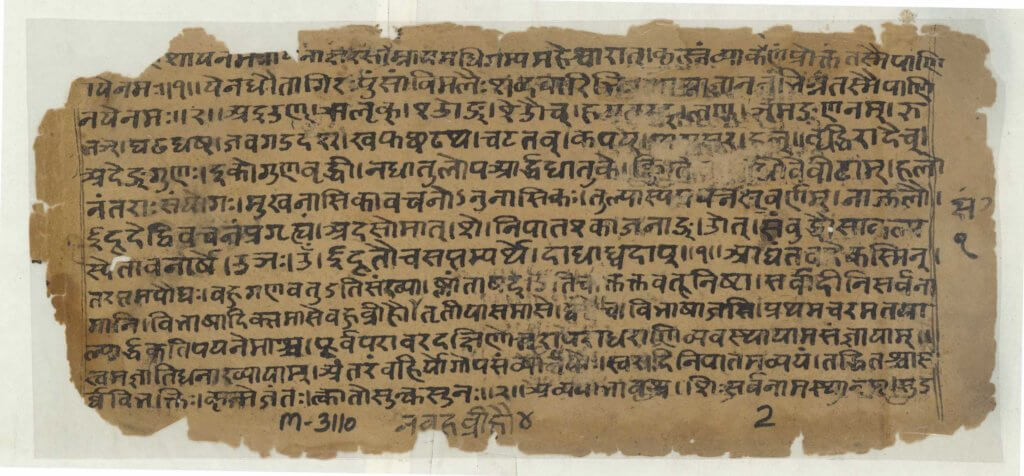 येनाक्षरसमाम्नायमधिगम्य महेश्वरात् कृत्स्नं व्याकरणं प्रोक्तं तस्मै पाणि
नयेनमः।।१।। येनधौतागिरःपुंसांविमलैःशब्दवारिभिः तस्मैपाणि
नयेनमः।।२।। अइउण्। ऋलृक्। एओङ्। ऐऔच्। हयवरट्। लण्। ञमङणनम्। झ
भञ्। घढधष्। जबगडदश्। खफछठथचटतव्। कपय्। हल्।। वृद्धिरादैच्।
अदेङ्गुणः। इकोगुणवृद्धी। नधातुलोपआर्द्धधातुके। दीधीवेवीटाम्। हलो
नंतराःसंयोगः। मुखनासिकावचनोऽनुनासिकः। तुल्यास्यप्रयत्नंसवर्णम्। नाज्झलौ।
ईदूदेद्द्विवचनंप्रगृह्यं। अदसोमात्। शे। निपातएकाजनाङ्। ओत्। संबुद्धौशाकल्य
स्येतावनार्षे। उञः। ऊँ। ईदूतौचसप्तम्यर्थे। दाधाघ्वदाप्।।१।। आद्यंतवदेकस्मिन्।
तरप्तमपौघः। बहुगणवतुडतिसंख्या। ष्णांताषट्। डतिच। क्तक्तवतूनिष्ठा। सर्वादीनिसर्वना
मानि। विभाषादिक्समासेबहुव्रीहौ। तृतीयासमासे। द्वंद्वेच। विभाषाजसि। प्रथमचरमतया
ल्पार्द्धकतिपयनेमाश्च। पूर्वपरावरदक्षिणोत्तरापराधराणिव्यवस्थायामसंज्ञायाम्।
स्वमज्ञातिधनाख्यायाम्। अंतरंबहिर्योगोपसंव्यानयोः। स्वरादिनिपातमव्ययं। तद्धितश्चास
र्वविभक्तिः। कृन्मेजंतः। त्क्वातोसुन्कसुनः।।२।। अव्ययीभावश्च। शिसर्वनामस्थानम्। सुड
१
m-3110 नबहुव्रीहौ ४ 2